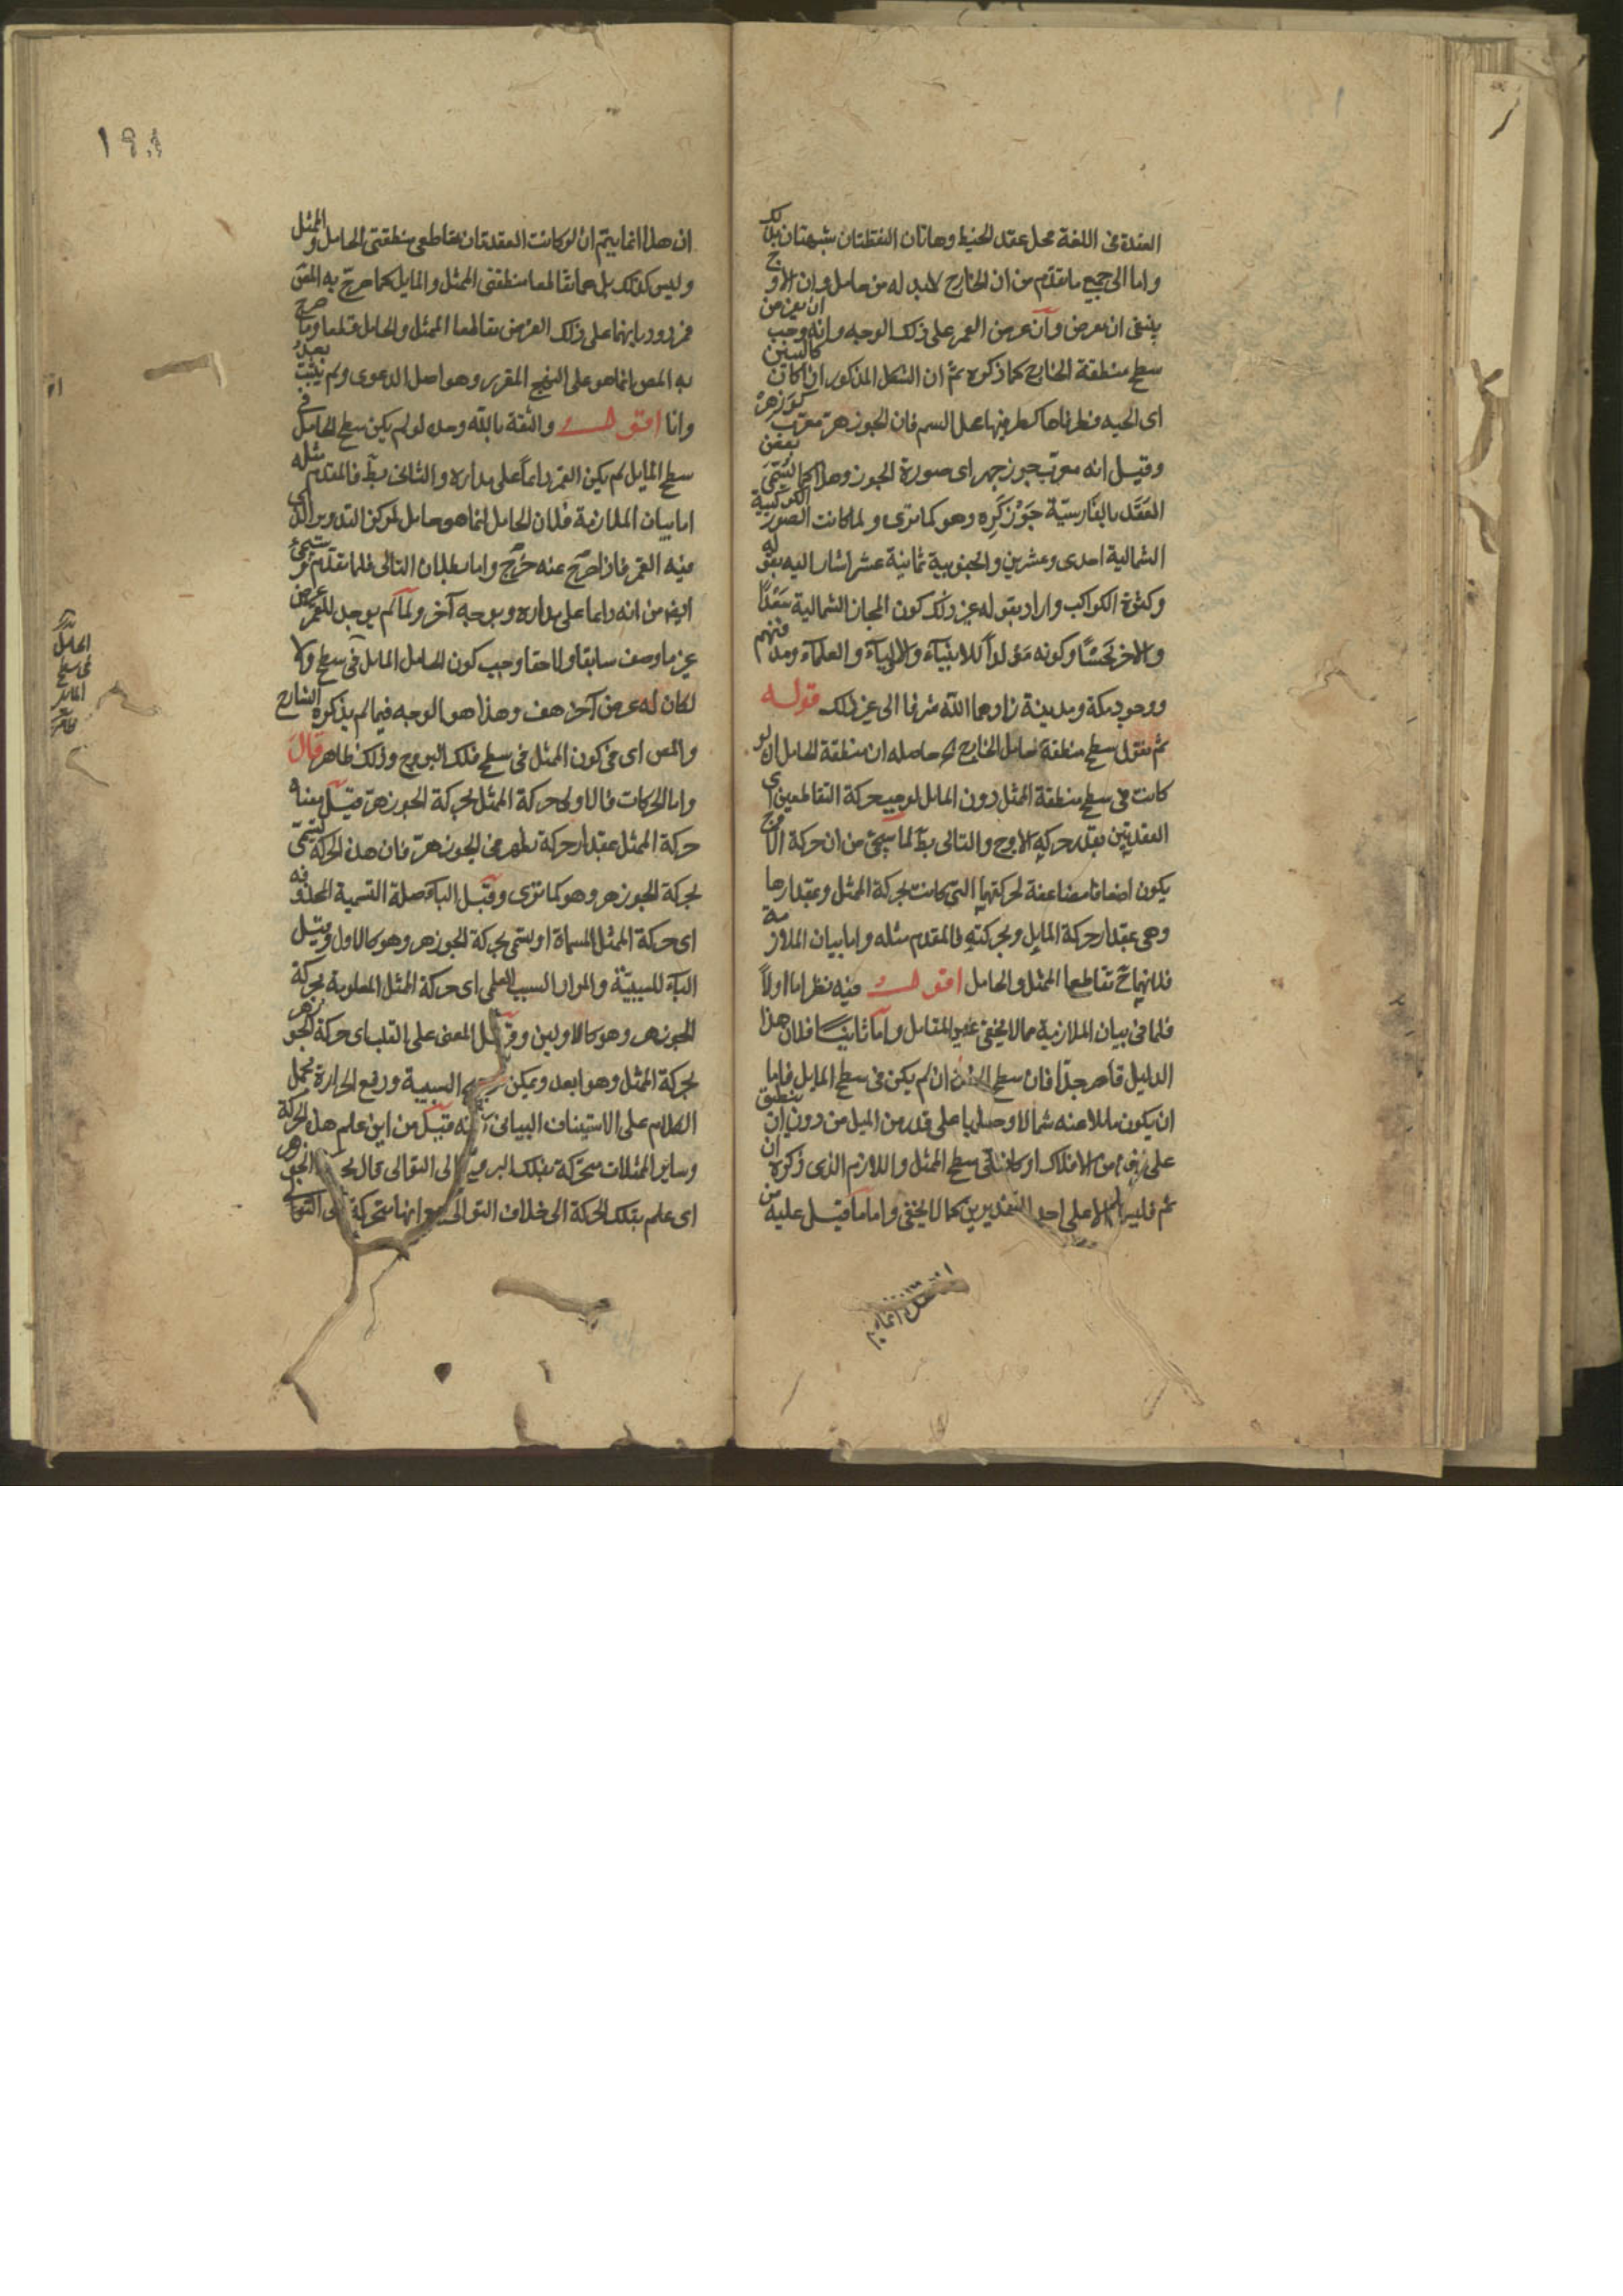 العقدة فى اللغة محل عقد الخيط وهاتان النقطتان شبهتان بذلك
واما الى جميع ما تقدم من ان الخارج لابد له من حامل وان الاوج
ينبغى ان يعرض وان عرض القمر على ذلك الوجه وانه وجب ان يعرض من
سطح منطقة الخارج كما ذكره ثم ان الشكل المذكور ان كان كالتنين
اى الحيه فطرفاها كطرفيها على السم فان الجوزهر معرب كوزهر
وقيل انه معرب جوزچهر اى صورة الجوز وهذا كما تسمى بعض
العقد بالفارسية جوز كره وهو كما ترى ولما كانت الصور الكوكبية
الشمالية احدى وعشرين والجنوبية ثمانية عشر اشار اليه بقوله
وكثرة الكواكب واراد بقوله غير ذلك كون المجاز الشمالية سعدا
والاخر نحسا وكونه مولدا للانبياء والاولياء والعلماء ومدفنهم
ووجود مكة ومدينة زادهما الله شرفا الى غير ذلك قوله
ثم نقول سطح منطقة حامل الخارج حاصله ان منطقة الحامل لو
كانت فى سطح منطقة الممثل دون المايل لوجب حركة التقاطعين اى
العقدتين بقدر حركة الاوج والتالى بط لما سيجئ من ان حركة الاوج
يكون اضعافا مضاعفة لحركتهما التى كانت بحركة الممثل وبمقدارها
وهى بمقدار حركة المايل وبحركته فالمقدم مثله واما بيان الملازمة
فلانهما ح تقاطعا الممثل والحامل اقول فيه نظر اما اولا
فلما فى بيان الملازمة مما لا يخفى على المتامل واما ثانيا فلان هذا
الدليل قاصر جدا فان سطح ان لم يكن فى سطح المايل فاما
ان يكون مايلا عنه شمالا وجنوبا على قدر من الميل من دون ان ينطبق
على من الافلاك او كائنا فى سطح الممثل واللازم الذى ذكره ان
تم فليس الا على احد التقديرين كما لا يخفى واما ما قيل عليه من
ان هذا انما يتم
ان هذا انما يتم ان لو كانت العقدتان تقاطعى منطقتى الحامل والممثل
وليس كذلك بل هما تقاطعا منطقتى الممثل والمايل كما صرح به المص
فمردود بانهما على ذلك الفرض تقاطعا الممثل والحامل قطعا وما صرح
به المص انما هو على النهج المقرر وهو اصل الدعوى ولم يثبت بعد
وانا اقول والثقة بالله وحده لو لم يكن سطح الحامل فى
سطح المايل لم يكن القمر دائما على مداره والتالى بط فالمقدم مثله
اما بيان الملازمة فلان الحامل انما هو حامل لمركز التدوير الذى
فيه القمر فاذا خرج عنه خرج واما بطلان التالى فلما تقدم وسيجئ
ايض من انه دائما على مداره وبوجه آخر ولما لم يوجد للقمر عرض
غير ما وصف سابقا ولاحقا وجب كون الحامل المايل فى سطح والا
لكان له عرض آخر هف وهذا هو الوجه فيما لم يذكره الشارح
والمص اى فى كون الممثل فى سطح فلك البروج وذلك ظاهر قال
واما الحركات فالاولى حركة الممثل بحركة الجوزهر قيل معناه
حركة الممثل بمقدار حركة تظهر فى الجوزهر فان هذه الحركة تسمى
بحركة الجوزهر وهو كما ترى وقيل الباء صلة التسمية المحذوفه
اى حركة الممثل المسماة او يسمى بحركة الجوزهر وهو كالاول وقيل
الباء للسببية والمراد السبب العلمى اى حركة الممثل المعلومة بحركة
الجوزهر وهو كالاولين وقيل المعنى على القلب اى حركة الجوزهر
بحركة الممثل وهو ابعد ويمكن السببية ورفع الحزازة بحمل
الكلام على الاستيناف البيانى قيل من اين علم هذه الحركة
وساير الممثلات متحركة بفلك البروج الى التوالى قال الجوزهر
اى علم بتلك الحركة الى خلاف التوالى مع انها متحركة الى التوالى